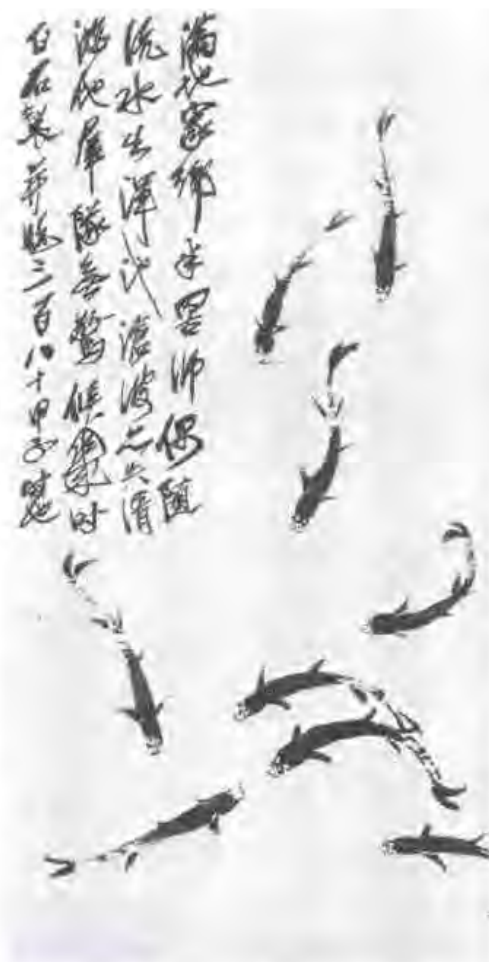 滿地家鄉半罟師偶隨
流水出渾池滄波亦失清
游地羣隊無驚時
白石製并題三百八十甲子時也